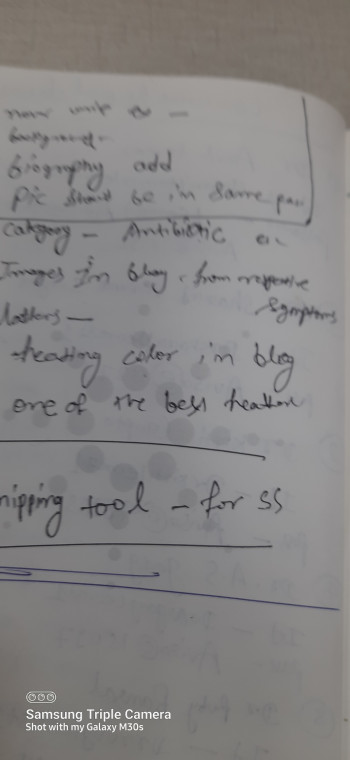 background -
biography add
Pic should be in same
Category - Antibiotic
Images in blog, from respective
Symptoms
heading color in blog
one of the best
nipping tool - for SS
Samsung Triple Camera
Shot with my Galaxy M30s